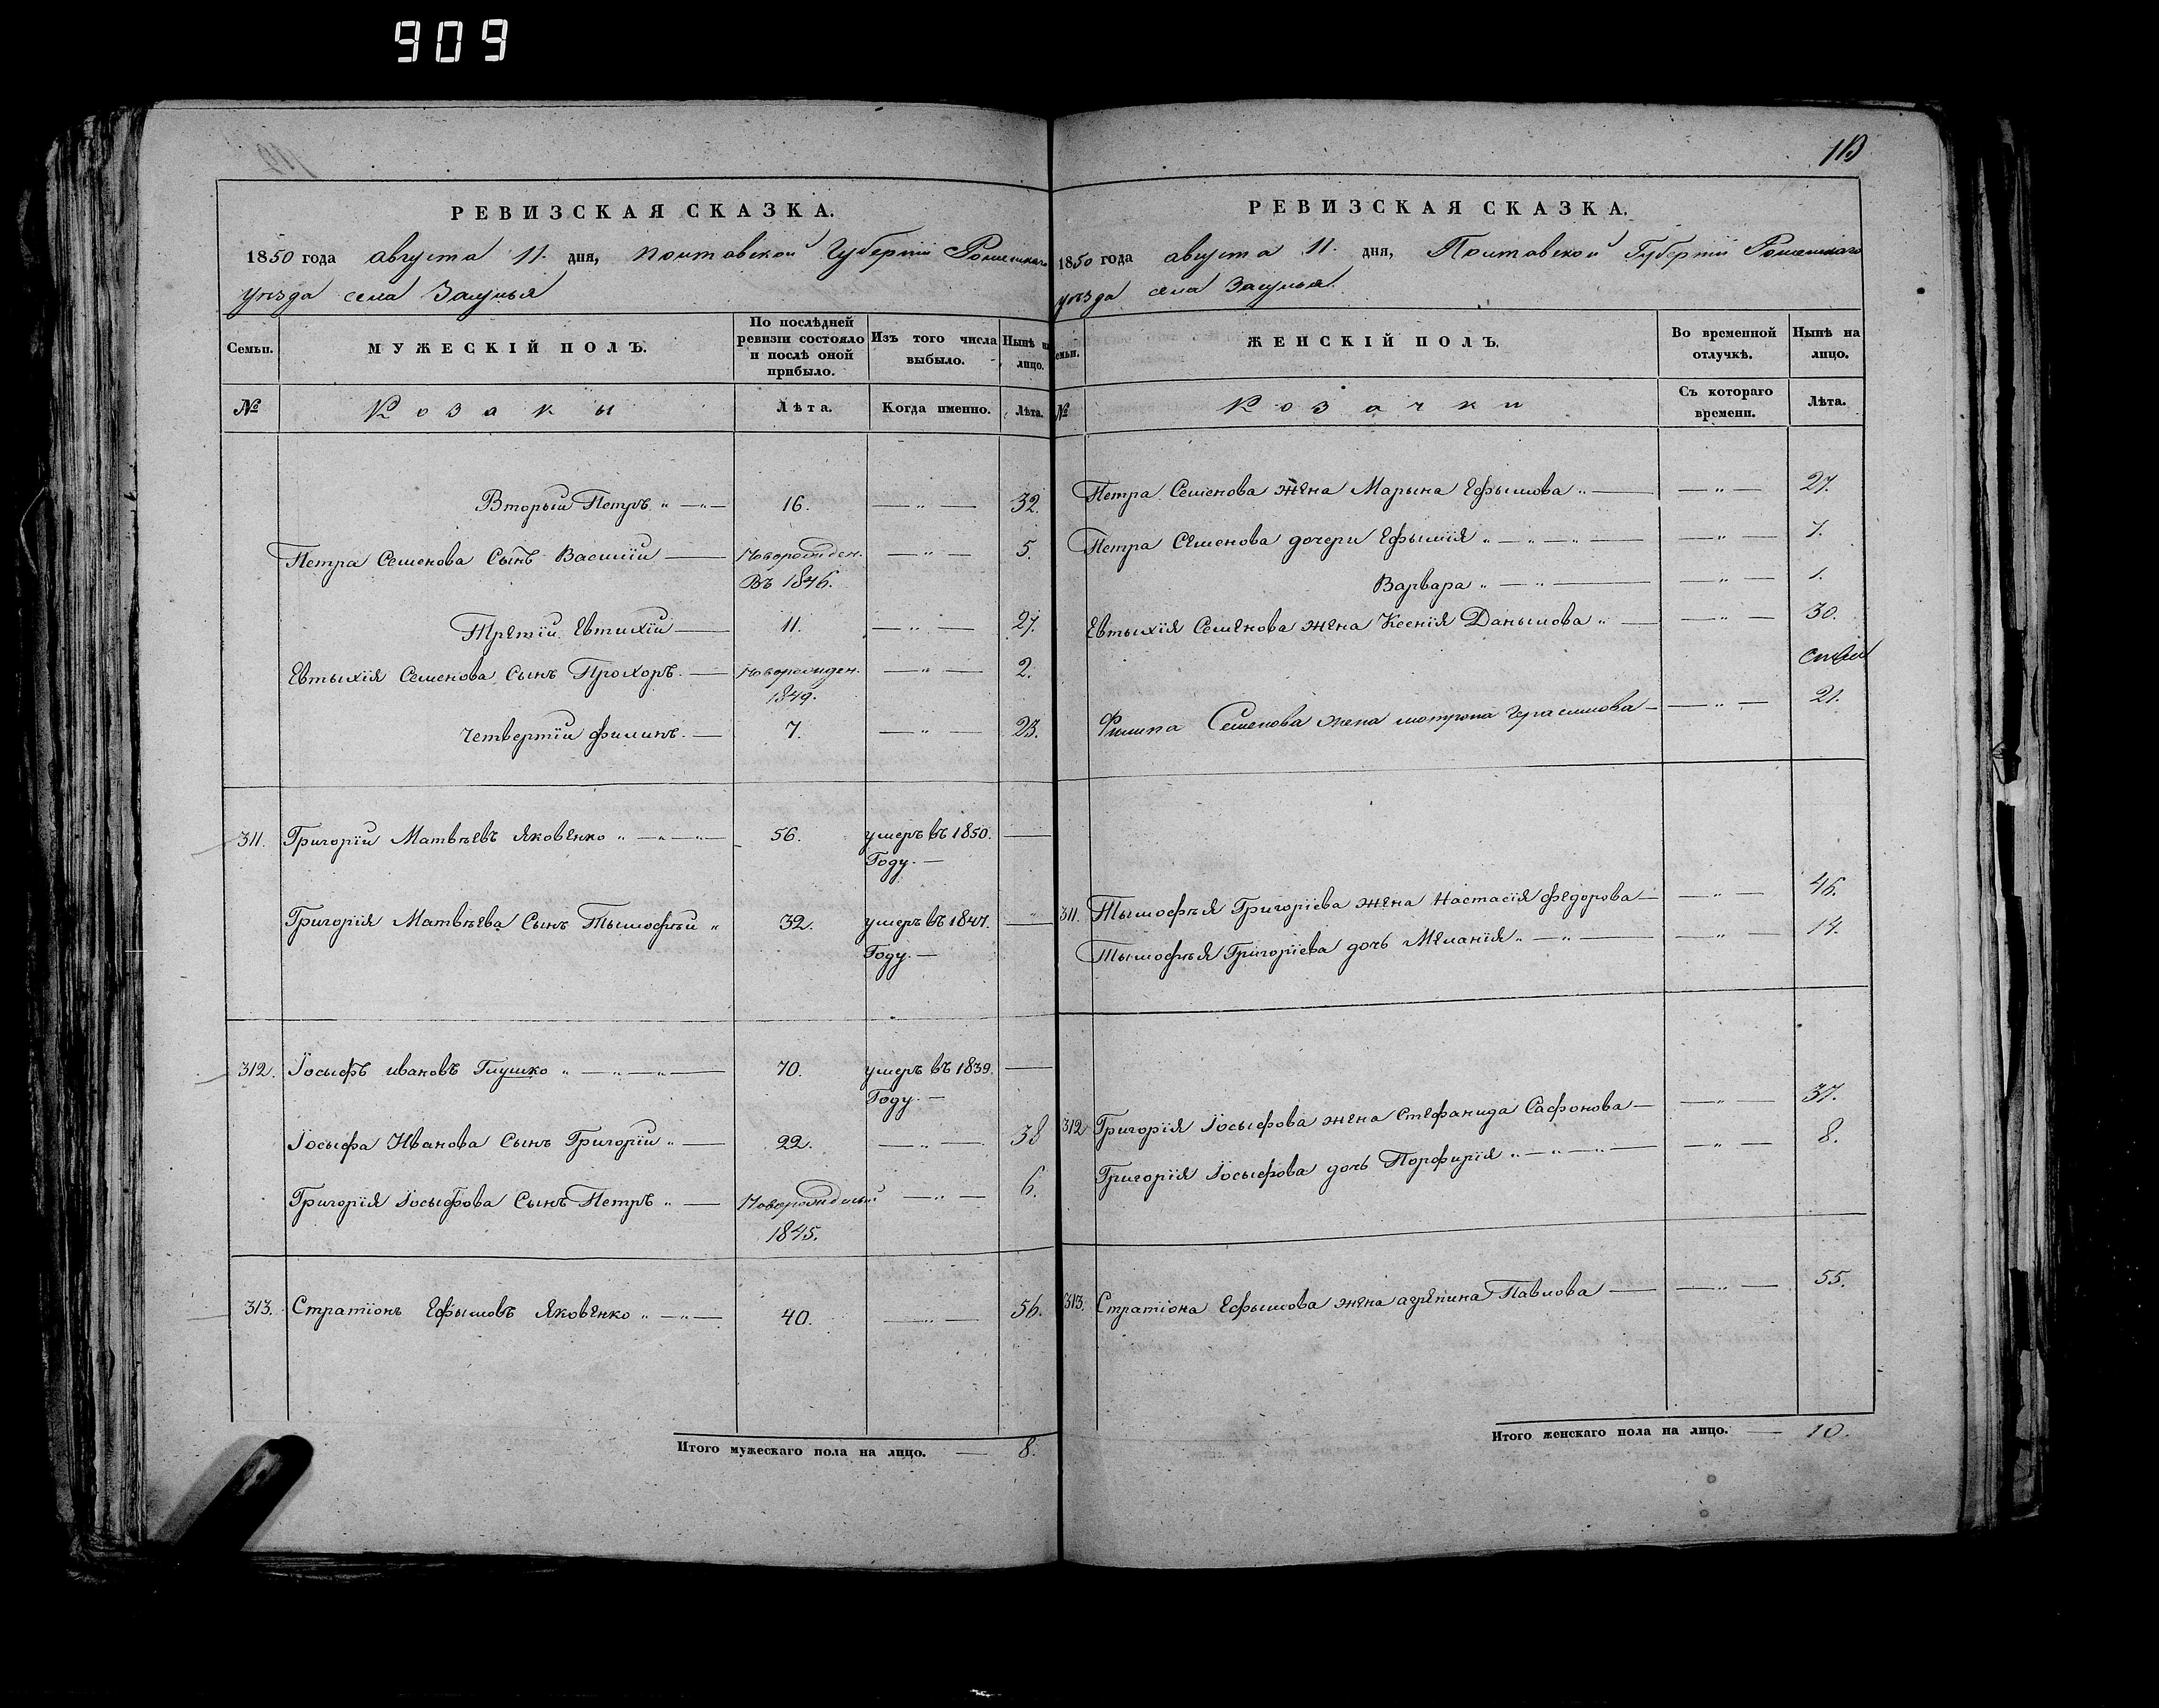 909
РЕВИЗСКАЯ СКАЗКА.
1850 года августа 11. дня, Полтавской Губерніи Роменскаго
уѣзда села Залуцья
Семьи.
МУЖЕСКІЙ ПОЛЪ.
По послѣдней ревизіи состояло и послѣ оной прибыло.
Изъ того числа выбыло.
Нынѣ на лицо.
№
Козаки
Лѣта.
Когда именно.
Лѣта.
Вторый Петръ 16. 32.
Петра Семенова Сынъ Василій Новорожден. 5.
Въ 1846.
Третій Евтихій 11. 27.
Евтыхія Семенова Сынъ Прохоръ. Новорожден. 2.
1849.
Четвертій Филипъ. 7. 23.
311. Григорій Матвѣевъ Яковенко 56. умеръ въ 1850.
Году.
Григорія Матвѣева Сынъ Тымофѣй 32. умеръ въ 1847.
Году.
312. Іосыфъ Ивановъ Глушко 70. умеръ въ 1839.
Году.
Іосыфа Иванова Сынъ Григорій 22. 38
Григорія Іосыфова Сынъ Петръ Новорожденый 6.
1845.
313. Стратіонъ Ефымовъ Яковенко 40. 56.
Итого мужескаго пола на лицо. 8.
РЕВИЗСКАЯ СКАЗКА.
1850 года августа 11. дня, Полтавской Губерніи Роменскаго
уѣзда села Залуцья.
Семьи.
ЖЕНСКІЙ ПОЛЪ.
Во временной отлучкѣ.
Нынѣ на лицо.
№
Козачки
Съ котораго времени.
Лѣта.
Петра Семенова жена Марына Ефымова 27.
Петра Семенова дочери Ефымія 7.
Варвара 1.
Евтыхія Семенова жена Ксенія Данылова 30.
Филипа Семенова жена мотрона Герасимова 21.
311. Тымофѣя Григоріева жена Настасія Федорова 46.
Тымофѣя Григоріева дочь Меланія 14.
312 Григорія Іосыфова жена Стефанида Сафонова 37.
Григорія Іосыфова дочь Порфирія 8.
313. Стратіона Ефымова жена агрепина Павлова 55.
Итого женскаго пола на лицо. 10.